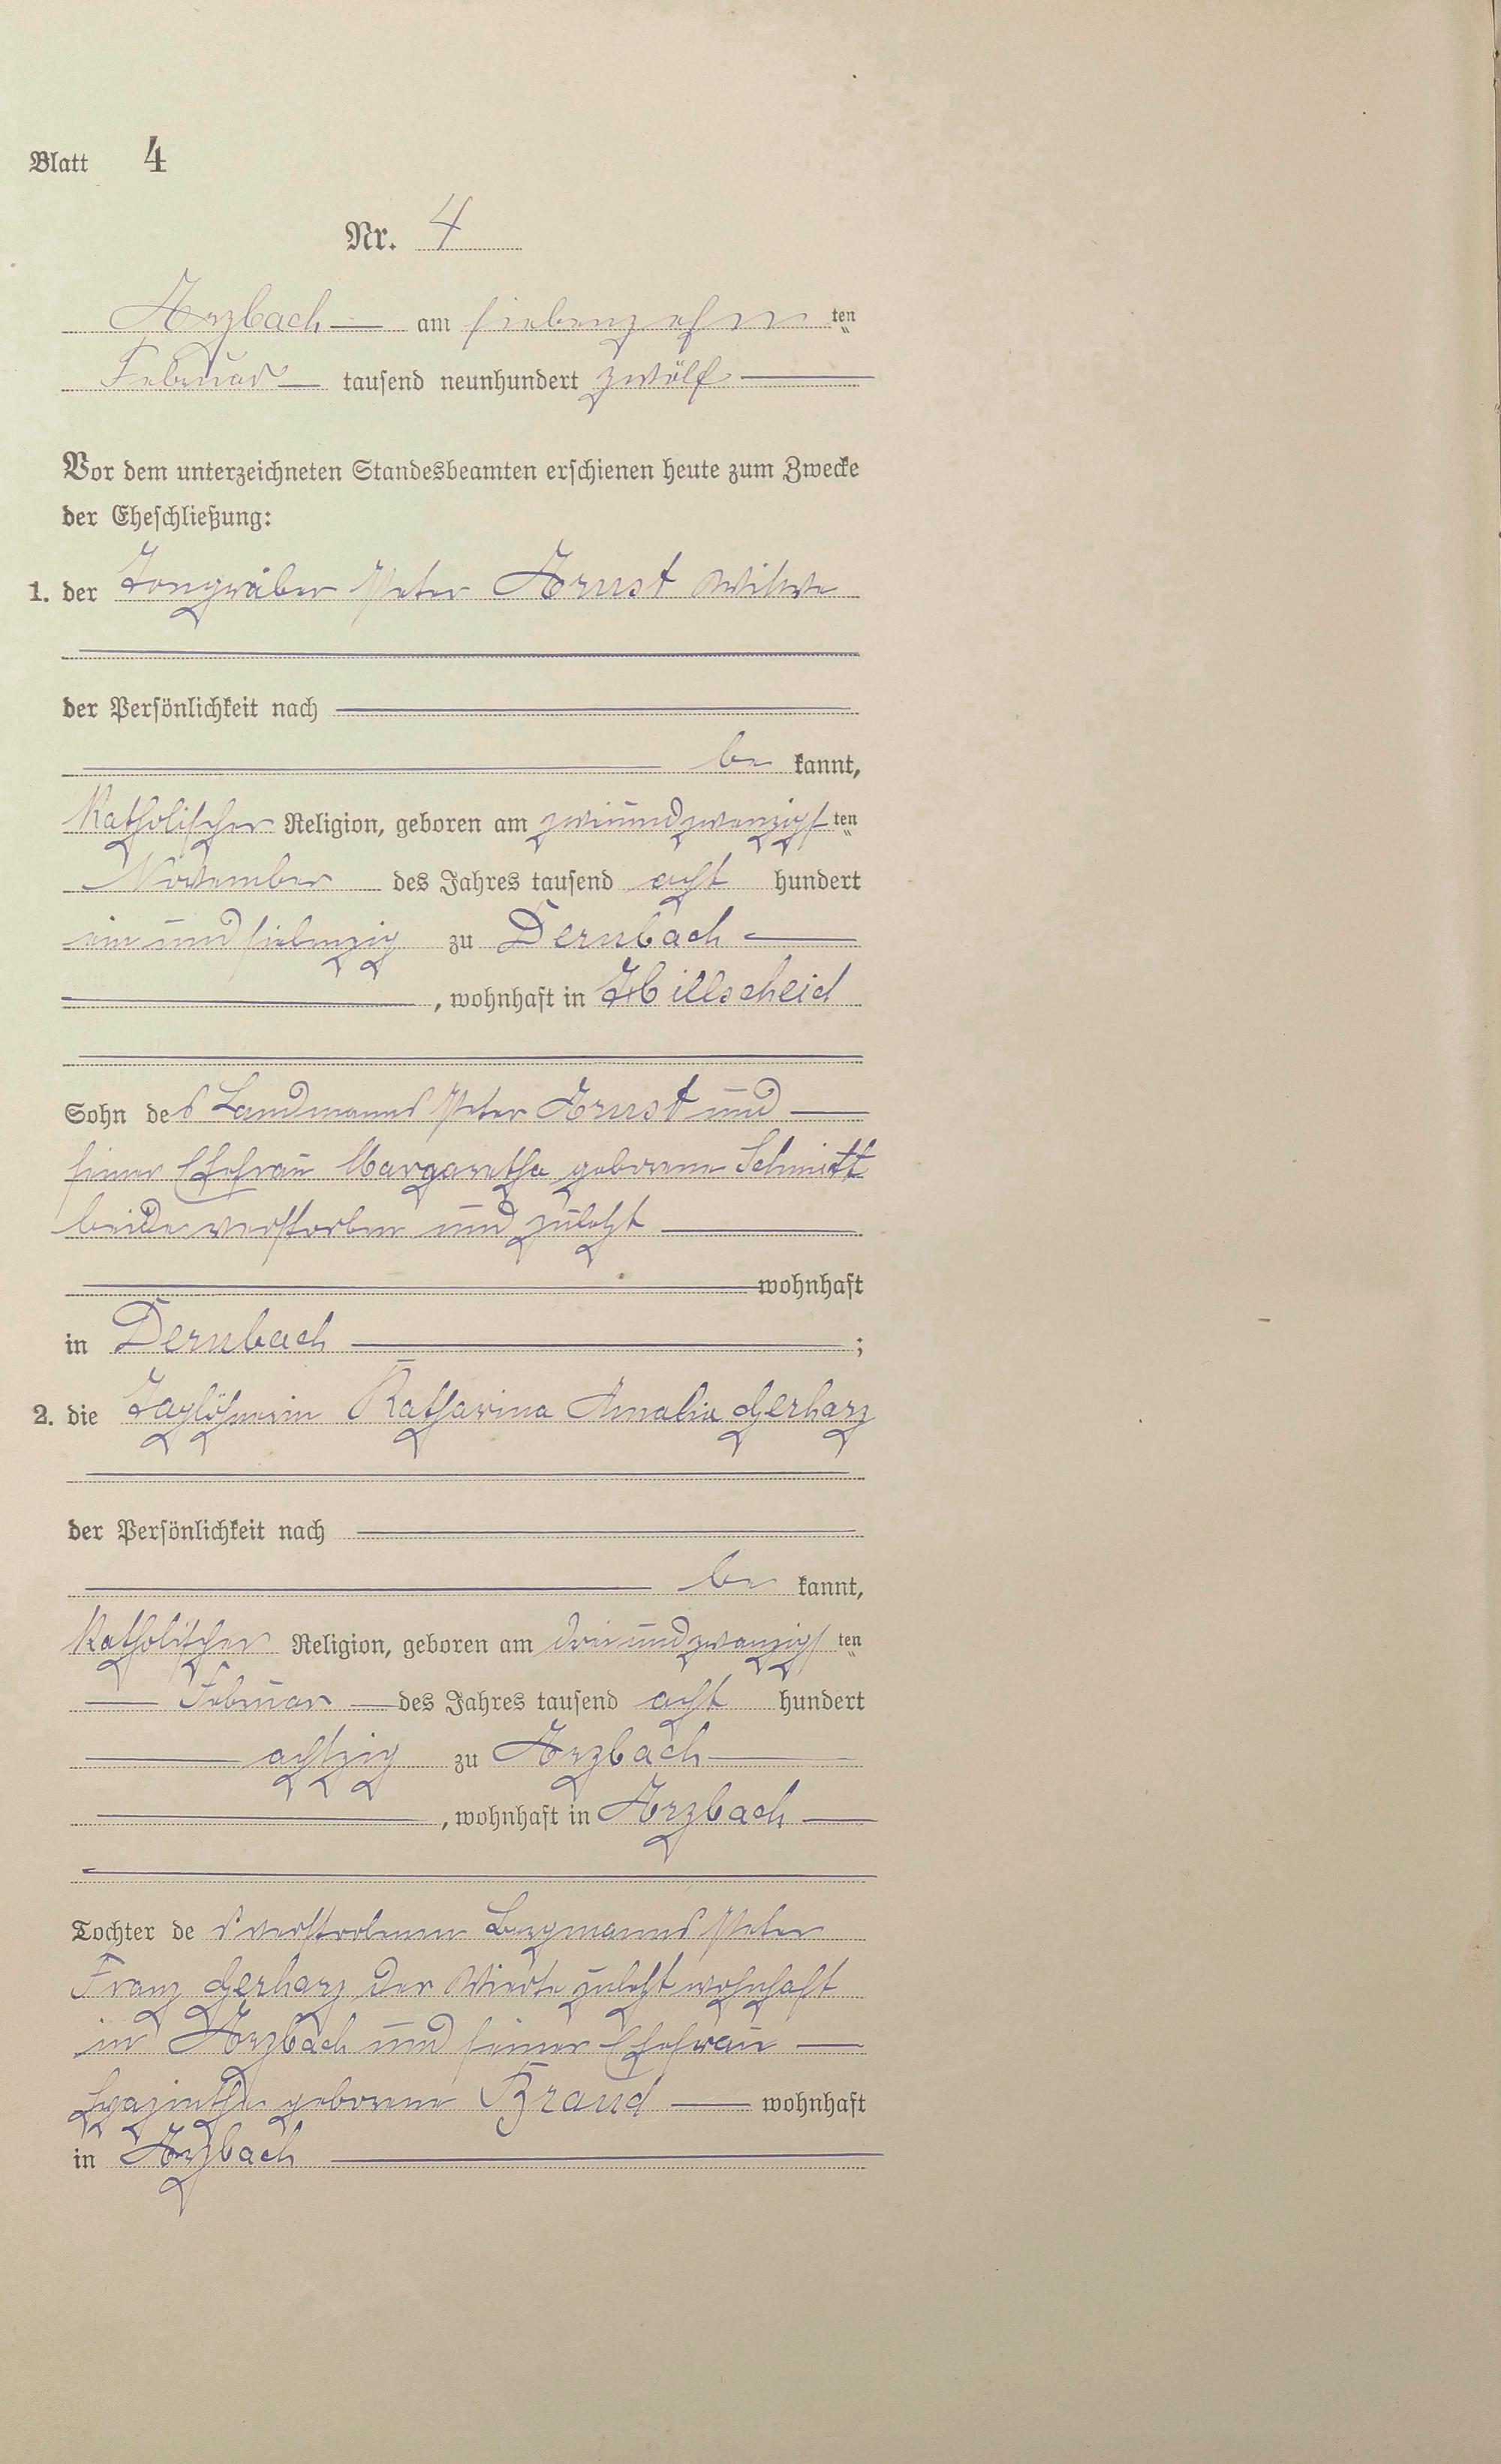 Blatt 4
Nr. 4
Arzbach am siebenzehn ten
Februar tausend neunhundert zwölf
Vor dem unterzeichneten Standesbeamten erschienen heute zum Zwecke
der Eheschließung:
1. der Tongräber Peter Ernst Witwer
der Persönlichkeit nach
be kannt,
Katholischer Religion, geboren am zweiundzwanzigs ten
November des Jahres tausend acht hundert
ein und siebenzig zu Dernbach
, wohnhaft in Hillscheid
Sohn des Landmanns Peter Ernst und
seiner Ehefrau Margaretha geborene Schmitt
beide verstorben und zuletzt
wohnhaft
in Dernbach ;
2. die Taglöhnerin Katharina Amalia Gerharz
der Persönlichkeit nach
be kannt,
Katholischer Religion, geboren am dreiundzwanzigs ten
Februar des Jahres tausend acht hundert
achtzig zu Arzbach
, wohnhaft in Arzbach
Tochter de s verstorbenen Bergmanns Peter
Franz Gerharz der Vierte zuletzt wohnhaft
in Arzbach und seiner Ehefrau
geborene Brand wohnhaft
in Arzbach